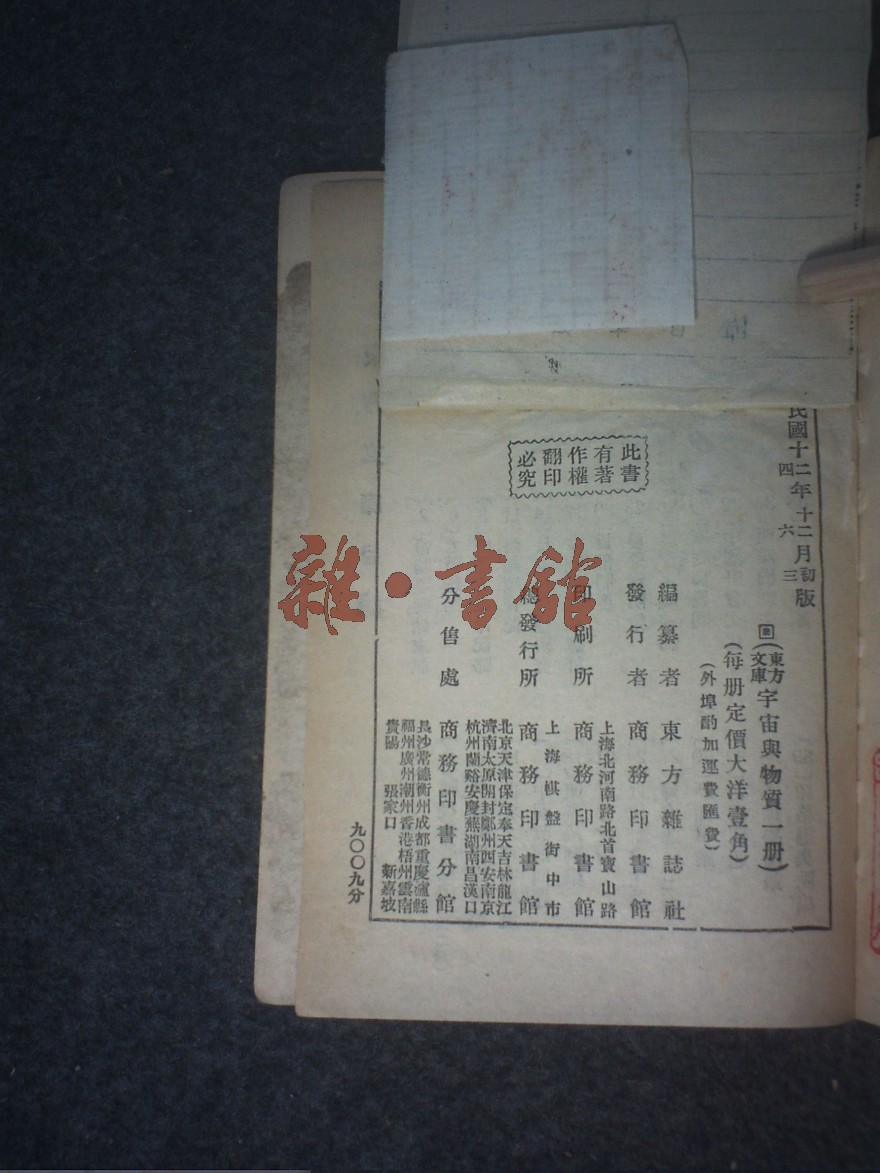 民國十二年十二月初版
四 六 三
(東方文庫)宇宙與物質一册)
(每册定價大洋壹角)
(外埠酌加運費匯費)
此書
有著
作權
翻印
必究
編纂者 東方雜誌社
發行者 商務印書館
上海北河南路北首寶山路
印刷所 商務印書館
上海棋盤街中市
總發行所 商務印書館
北京天津保定奉天吉林龍江
濟南太原開封鄭州西安南京
杭州蘭谿安慶蕪湖南昌漢口
分售處 商務印書分館
長沙常德衡州成都重慶瀘縣
福州廣州潮州香港梧州雲南
貴陽 張家口 新嘉坡
九〇〇九分
雜·書館